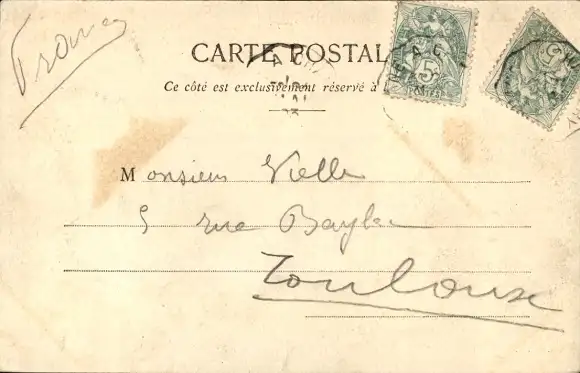 France
CARTE POSTAL
Ce côté est exclusivement réservé à
5c
Monsieur Vielle
5 rue Bayle
Toulouse